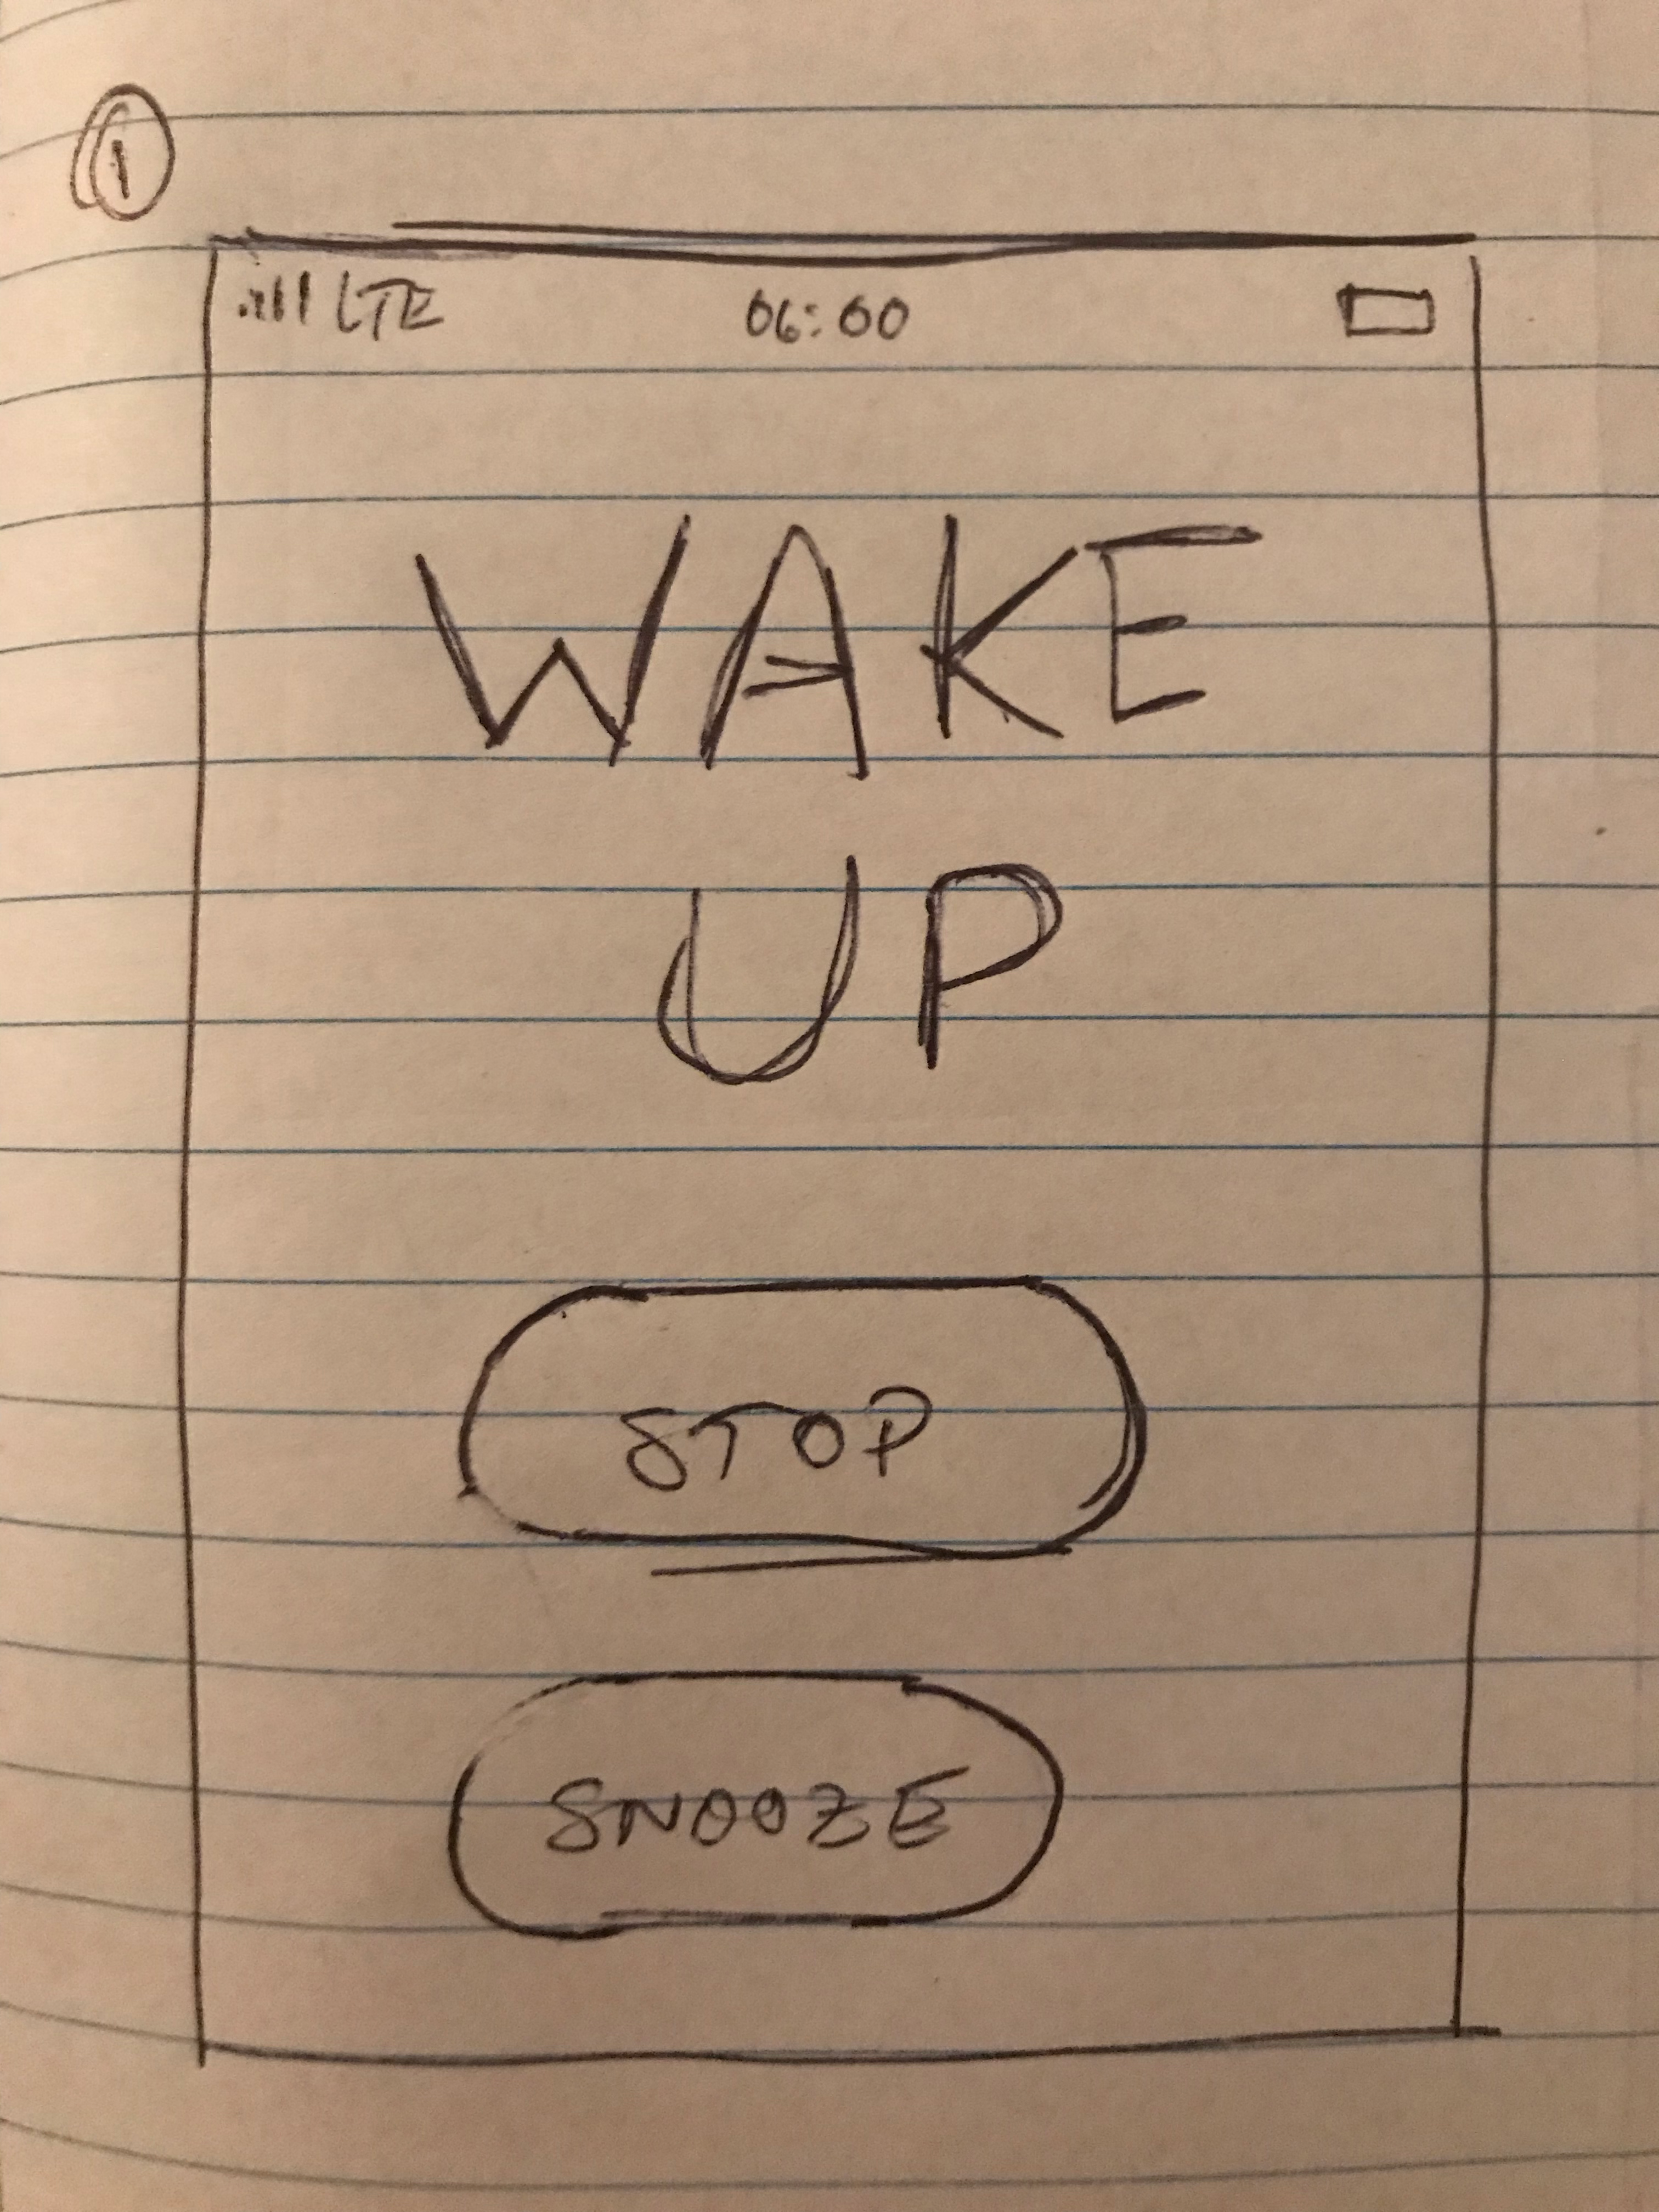 1
LTE 06:00
WAKE
UP
STOP
SNOOZE